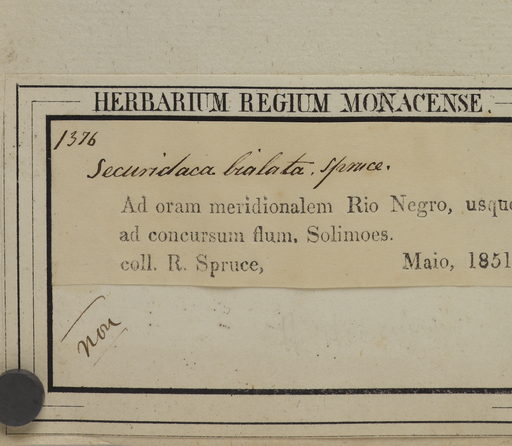 HERBARIUM REGIUM MONACENSE.
1376
Securidaca bialata. Spruce.
Ad oram meridionalem Rio Negro, usque
ad concursum flum. Solimoes.
coll. R. Spruce, Maio, 1851
non